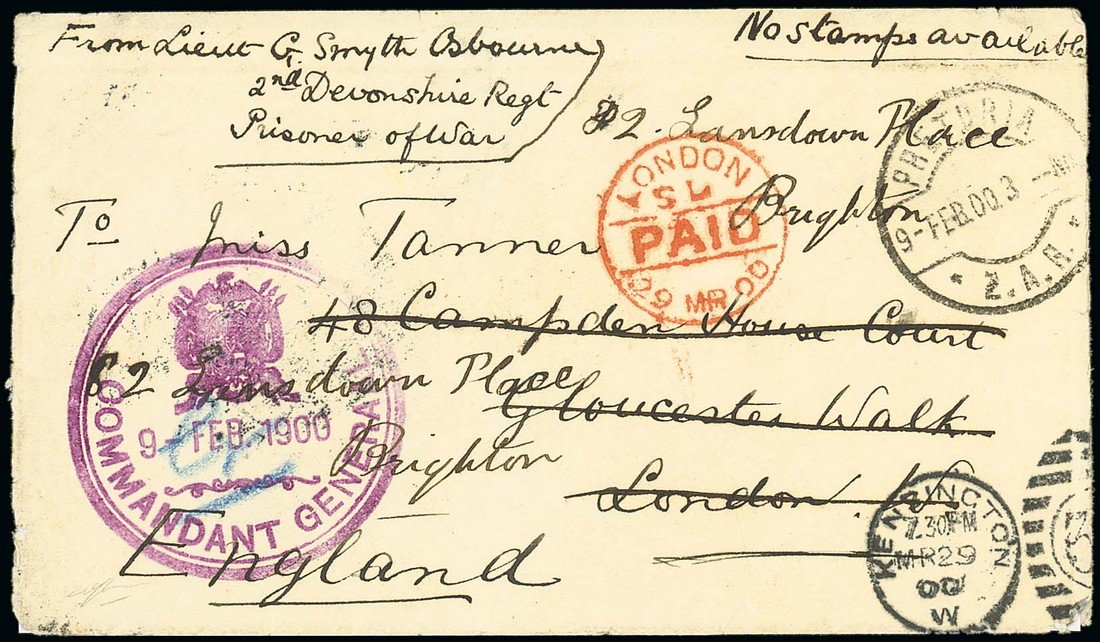 From Lieut G. Smyth Osbourne
2nd Devonshire Regt
Prisoner of War
No stamps available
82. Lansdown Place
Brighton
To Miss Tanner
48 Campden House Court
Gloucester Walk
London. W
82 Lansdown Place
Brighton
England
LONDON
SL
PAID
29 MR 00
PRETORIA
9-FEB.00.3
Z.A.R.
COMMANDANT GENERAAL
9-FEB. 1900
KENSINGTON
7.30PM
MR29
00
W